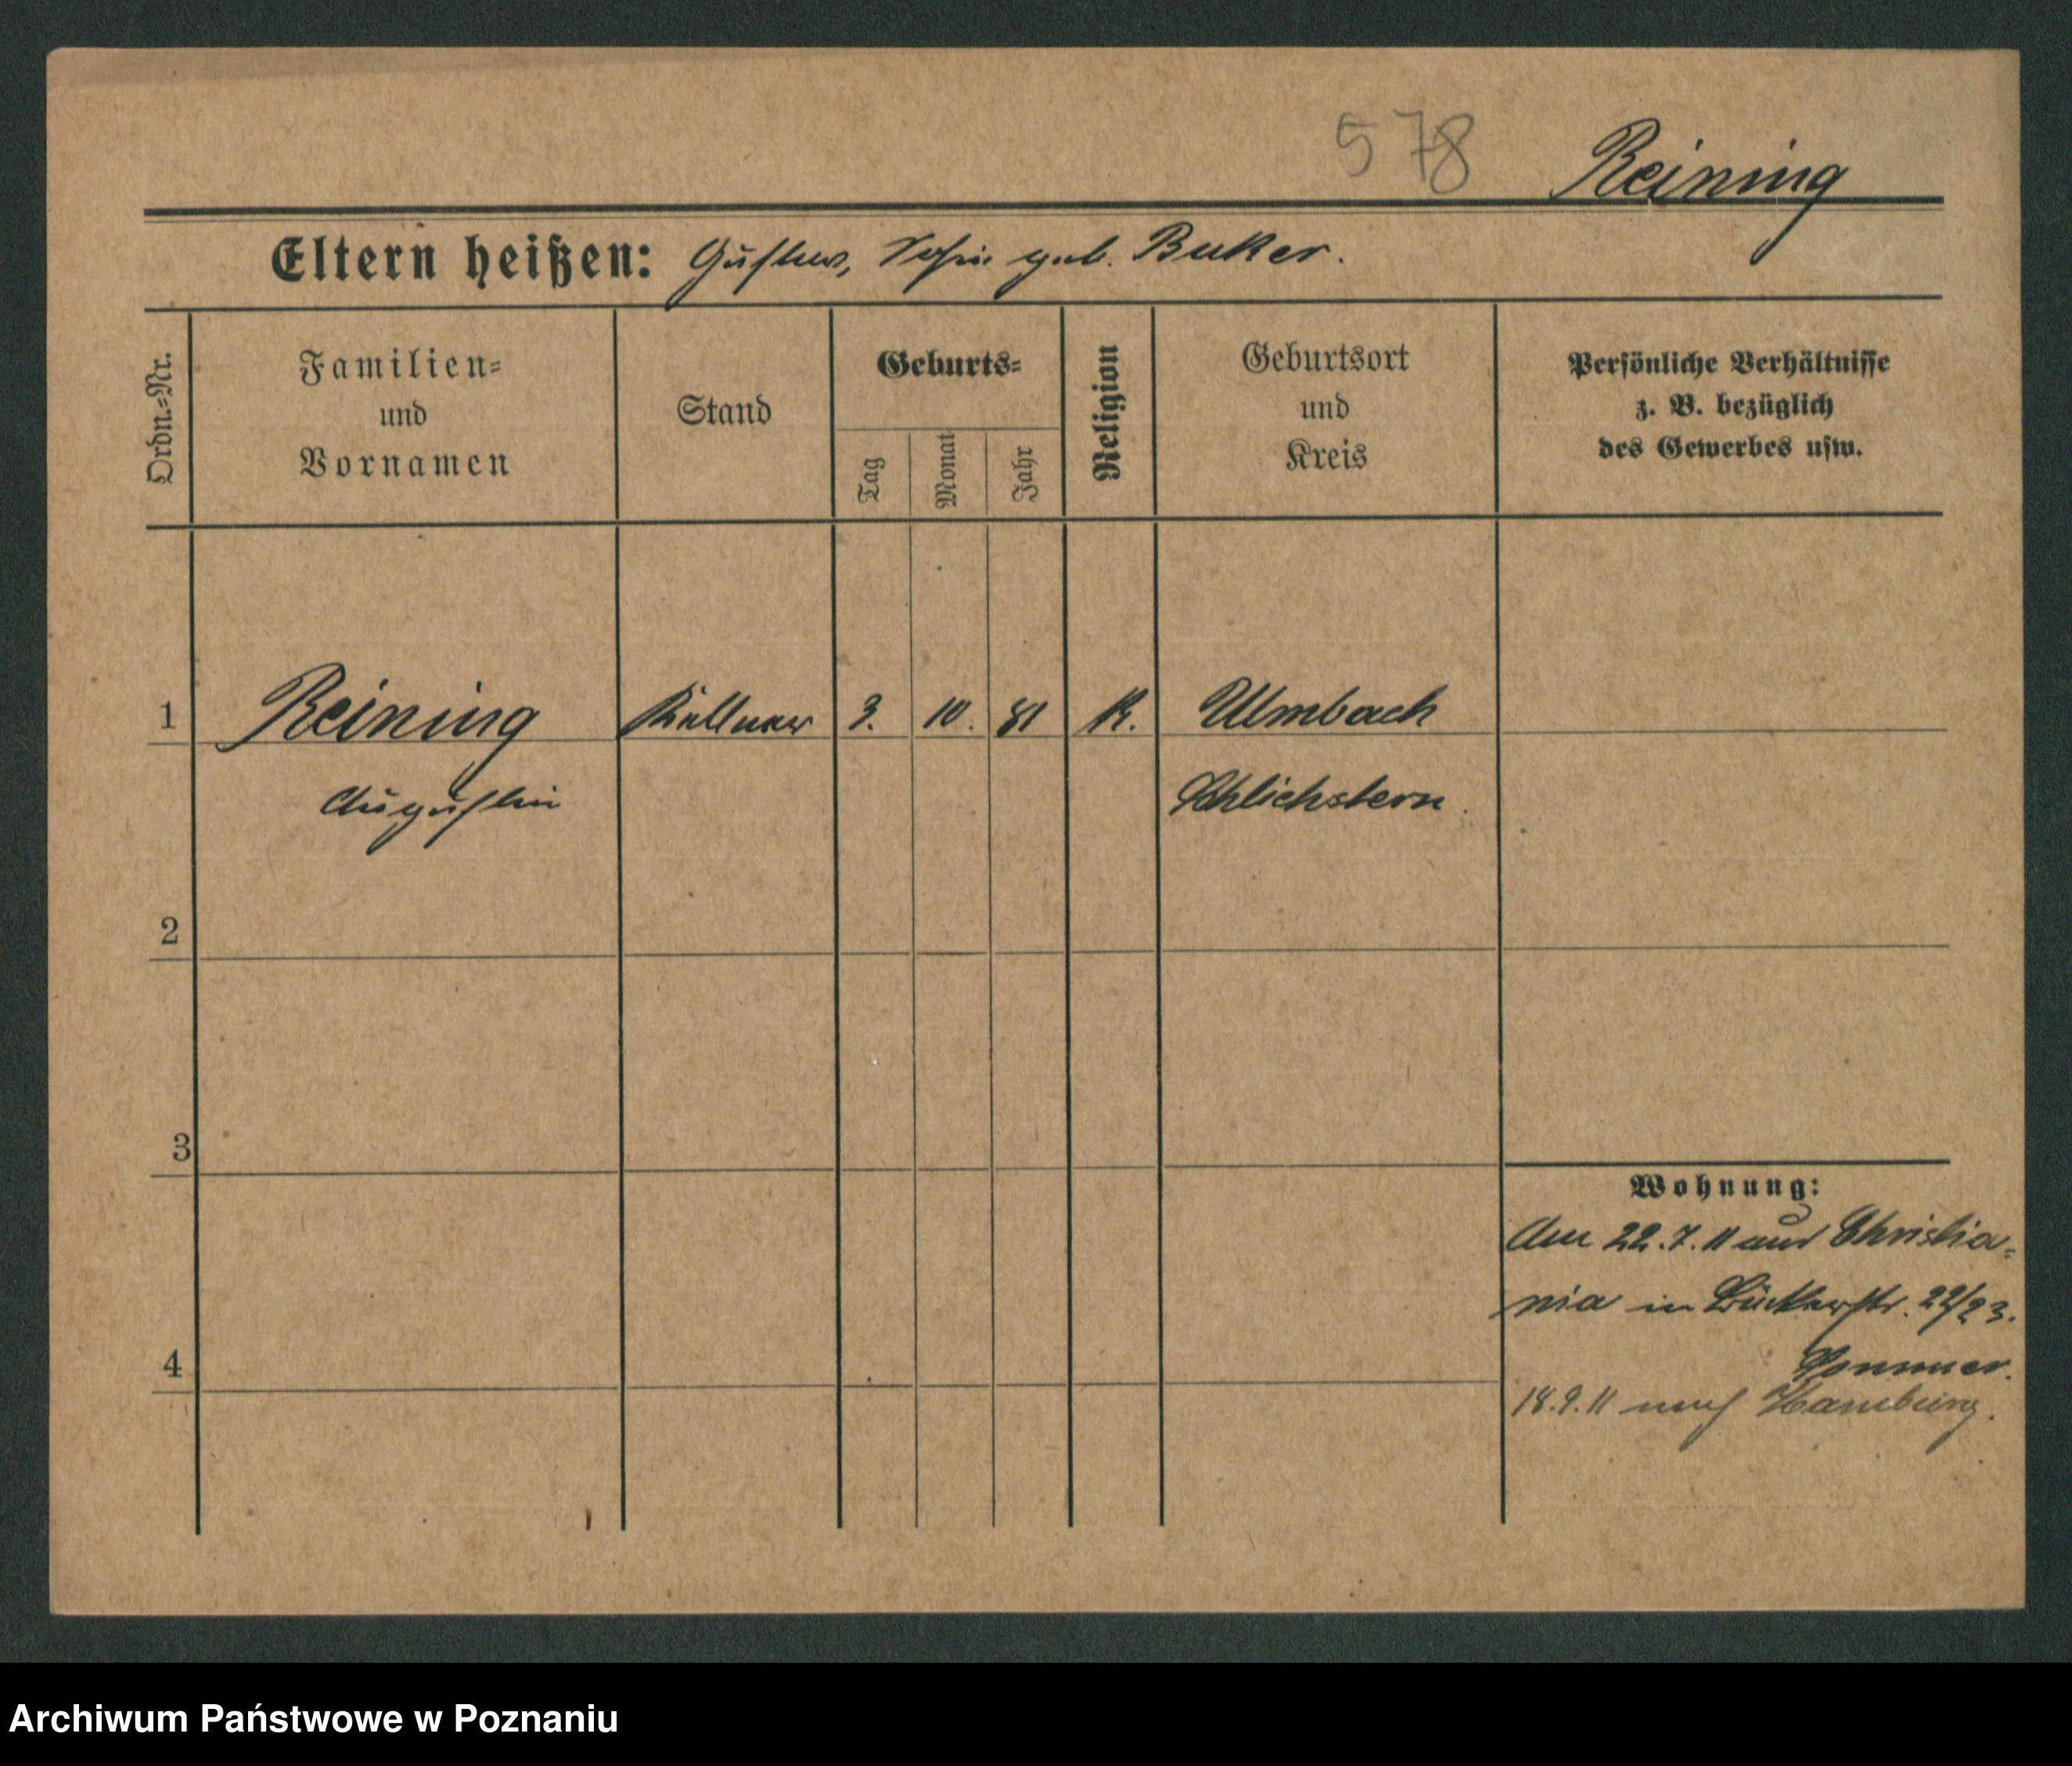 578 Reining
Eltern heißen: Gustav, Sofie geb. Buker.
Ordn.-Nr.
Familien-
und
Vornamen
Stand
Geburts-
Tag
Monat
Jahr
Religion
Geburtsort
und
Kreis
Persönliche Verhältnisse
z. B. bezüglich
des Gewerbes usw.
1 Reining Kellner 3. 10. 81 K. Ulmbach
Augustin Schlichstern.
2
3
Wohnung:
Am 22.7.11 aus Christia-
nia in Bückerstr. 22/23.
4
Sommer.
18.9.11 nach Hamburg.
Archiwum Państwowe w Poznaniu